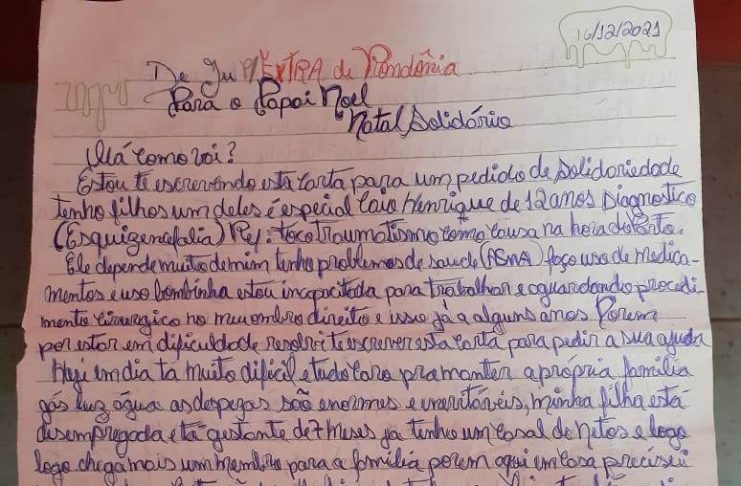 16/12/2021
De Ju P/EXTRA de Rondônia
Para o Papai Noel
Natal Solidário
Olá como vai?
Estou te escrevendo esta carta para um pedido de Solidariedade
tenho filhos um deles é especial Caio Henrique de 12 anos Diagnostico
(Esquizencefalia) Ref: tocotraumatismo como causa na hora do Parto.
Ele depende muito de mim tenho problemas de saude (ASMA) faço uso de medica-
mentos e uso bombinha estou incapacitada para trabalhar e aguardando procedi-
mento cirurgico no meu ombro direito e isso já a alguns anos Porem
por estar em dificuldade resolvi te escrever esta carta para pedir a sua ajuda
Hoje em dia ta muito dificil e tudo caro pra manter a própria família
gás luz água as despezas são enormes e inevitáveis, minha filha está
desempregada e tá gestante de 7 meses ja tenho um casal de netos e logo
logo chega mais um membro para a família porem aqui em casa precisei